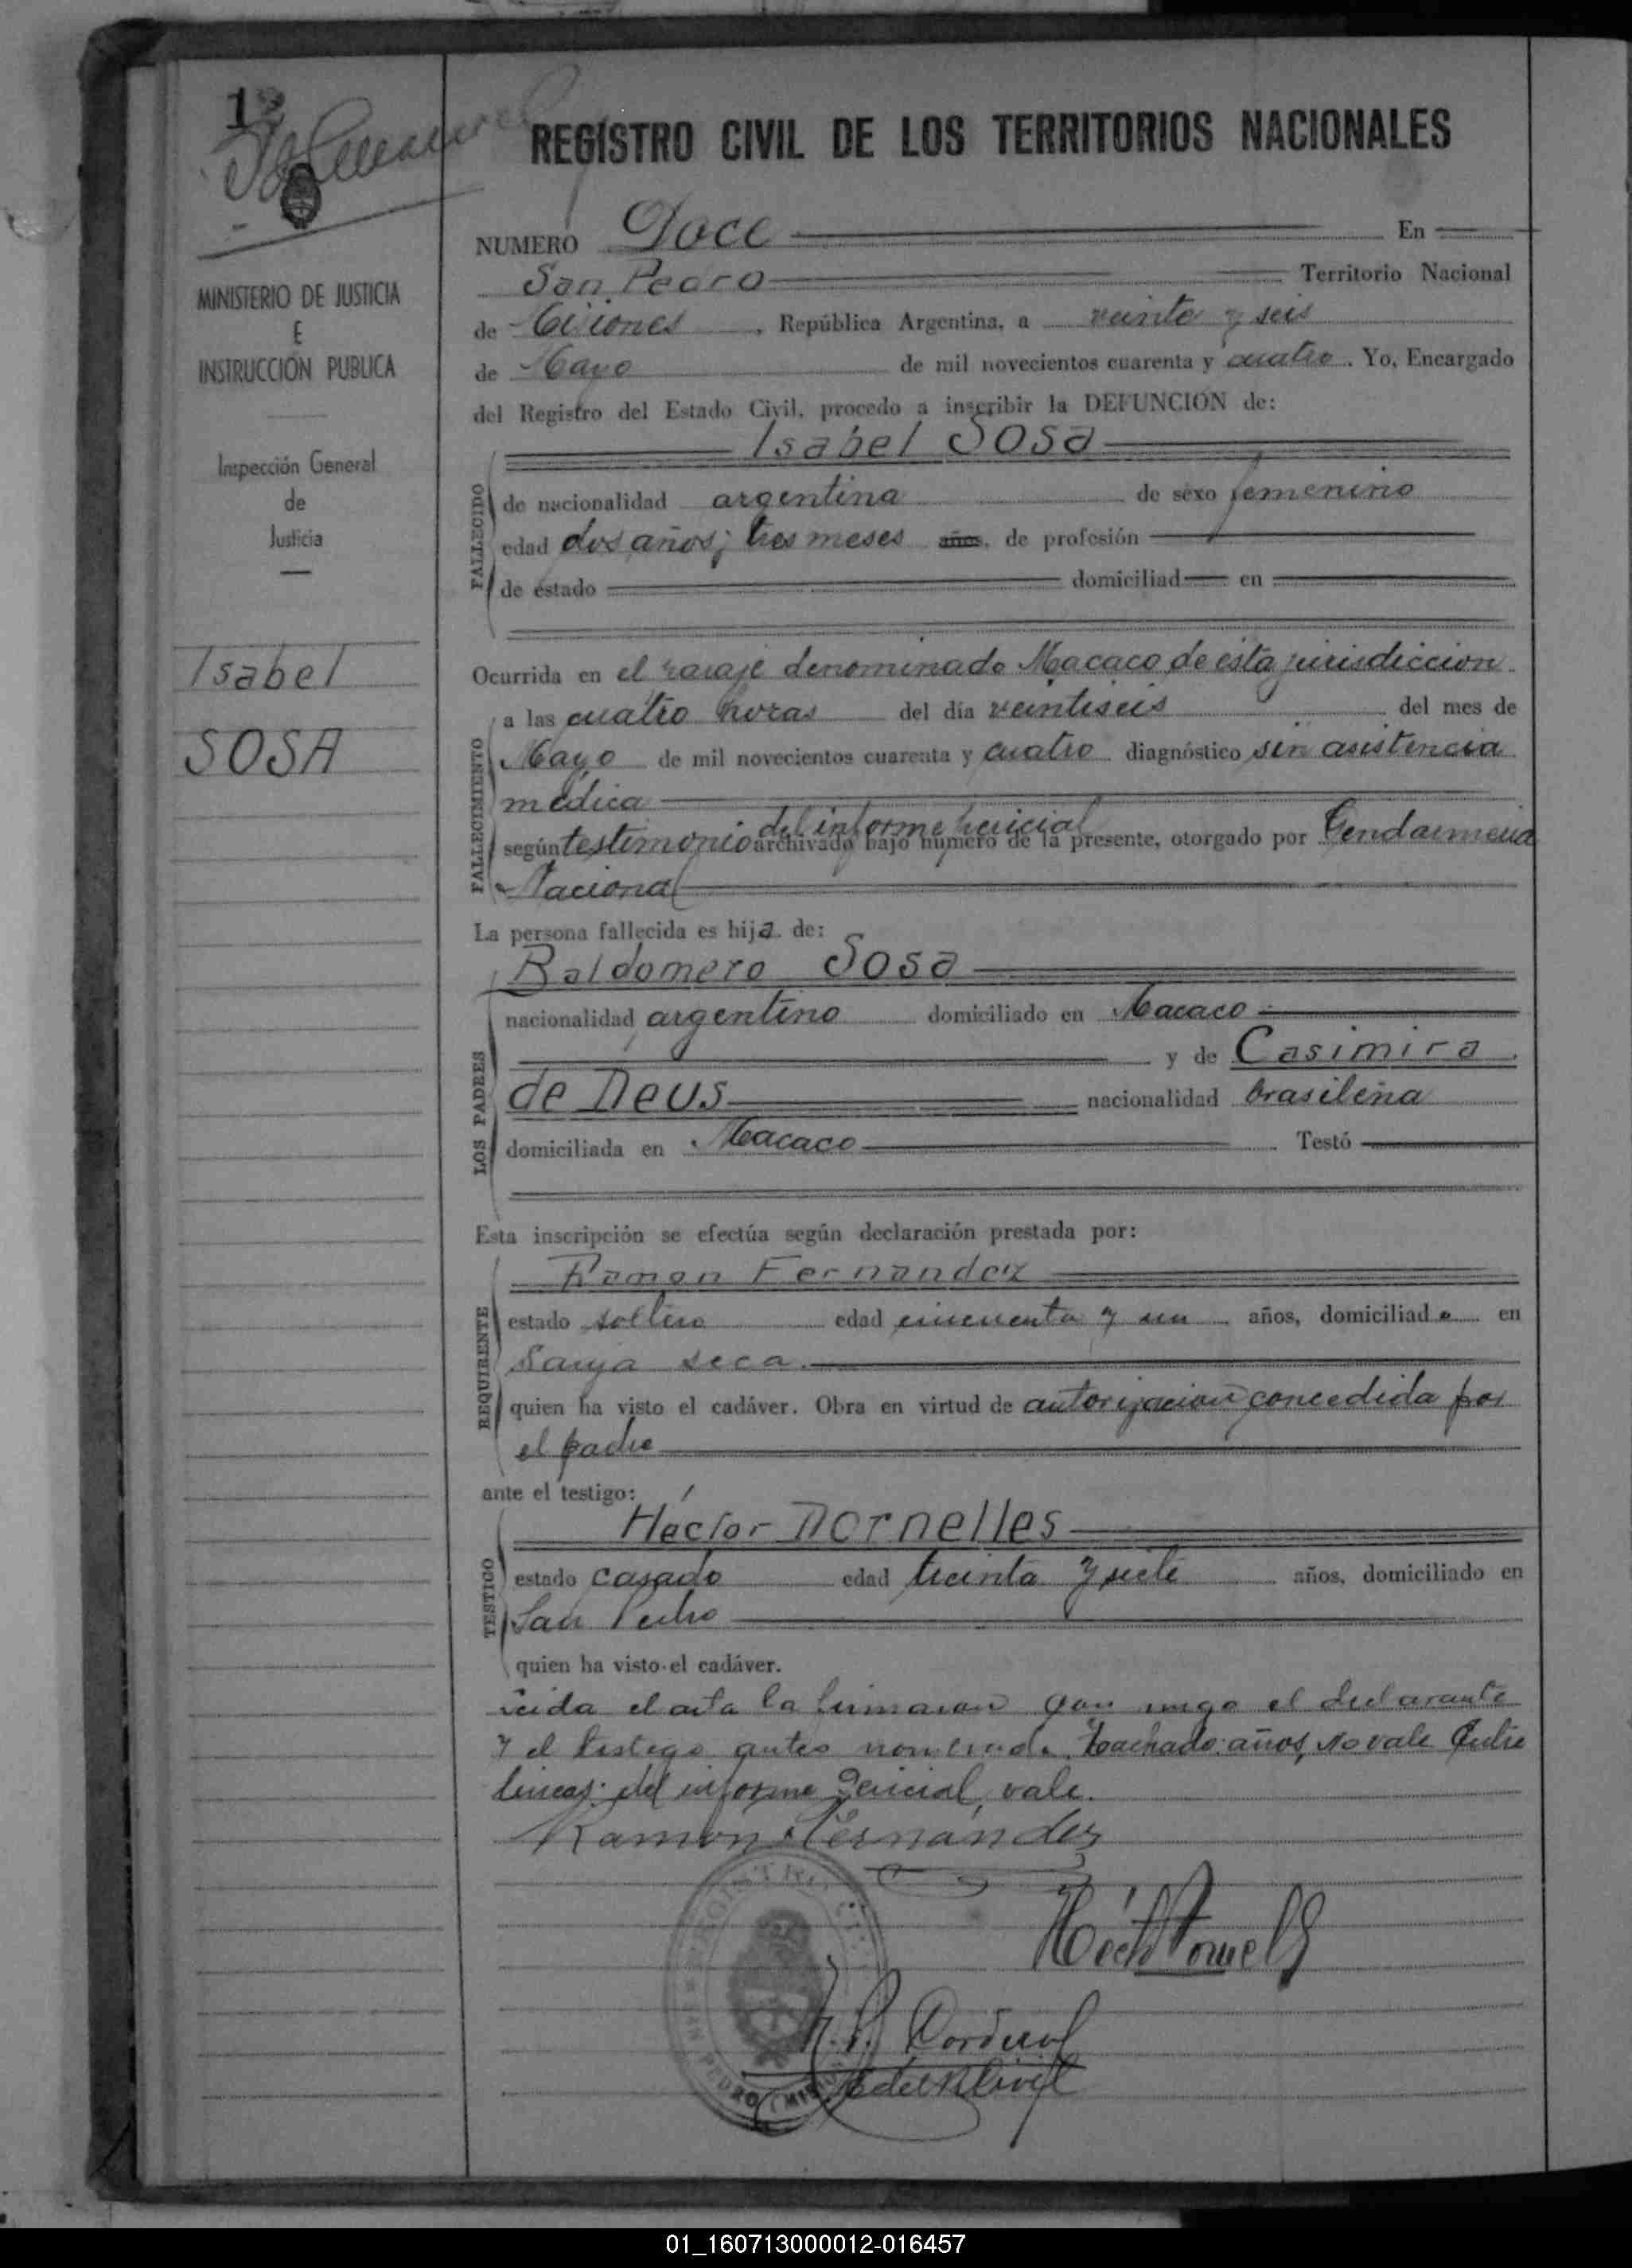 12
REGISTRO CIVIL DE LOS TERRITORIOS NACIONALES
MINISTERIO DE JUSTICIA
E
INSTRUCCIÓN PUBLICA
Inspección General
de
Justicia
Isabel
SOSA
NUMERO Doce En
San Pedro Territorio Nacional
de Misiones, República Argentina, a veinte y seis
de Mayo de mil novecientos cuarenta y cuatro. Yo, Encargado
del Registro del Estado Civil, procedo a inscribir la DEFUNCIÓN de:
Isabel Sosa
FALLECIDO
de nacionalidad argentina de sexo femenino
edad dos años; tres meses años, de profesión
de estado domiciliad en
Ocurrida en el paraje denominado Macaco de esta jurisdiccion
FALLECIMIENTO
a las cuatro horas del día veintiseis del mes de
Mayo de mil novecientos cuarenta y cuatro diagnóstico sin asistencia
médica
del informe pericial
según testimonio archivado bajo número de la presente, otorgado por Gendarmeria
Nacional
La persona fallecida es hija de:
LOS PADRES
Baldomero Sosa
nacionalidad argentino domiciliado en Macaco
y de Casimira
de Deus nacionalidad brasileña
domiciliada en Macaco Testó
Esta inscripción se efectúa según declaración prestada por:
REQUIRENTE
Ramon Fernandez
estado soltero edad cincuenta y un años, domiciliado en
seca.
quien ha visto el cadáver. Obra en virtud de autorizacion concedida por
el padre
ante el testigo:
TESTIGO
Héctor Dornelles
estado casado edad treinta y siete años, domiciliado en
San Pedro
quien ha visto el cadáver.
Leida el acta la firmaron con migo el declarante
y el testigo antes nombrado. Tachado: años, No vale Entre
lineas: del informe pericial, vale.
Ramon Fernandez
REGISTRO CIVIL
SAN PEDRO (MISIONES)
01_160713000012-016457